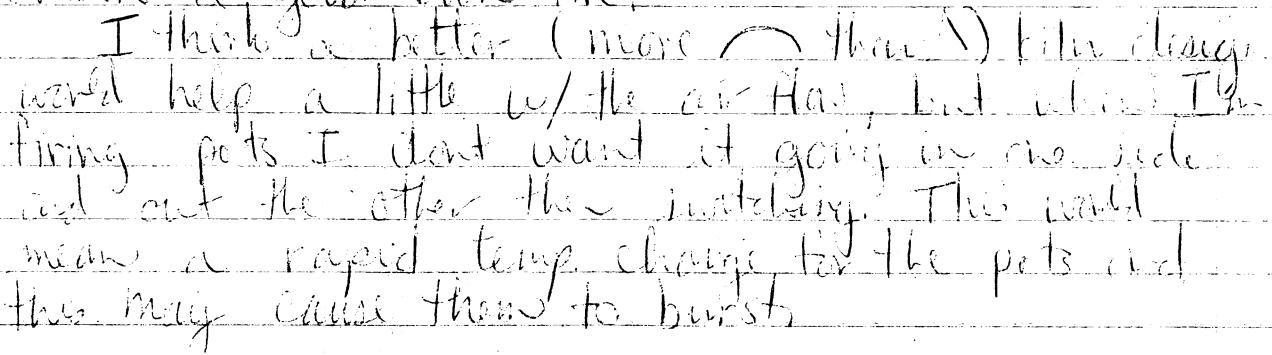 I think a better (more ⌒ than \) kiln design
would help a little w/ the air flow, but when I'm
firing pots I dont want it going in one side
and out the other then switching. This would
mean a rapid temp. change for the pots and
this may cause them to burst.